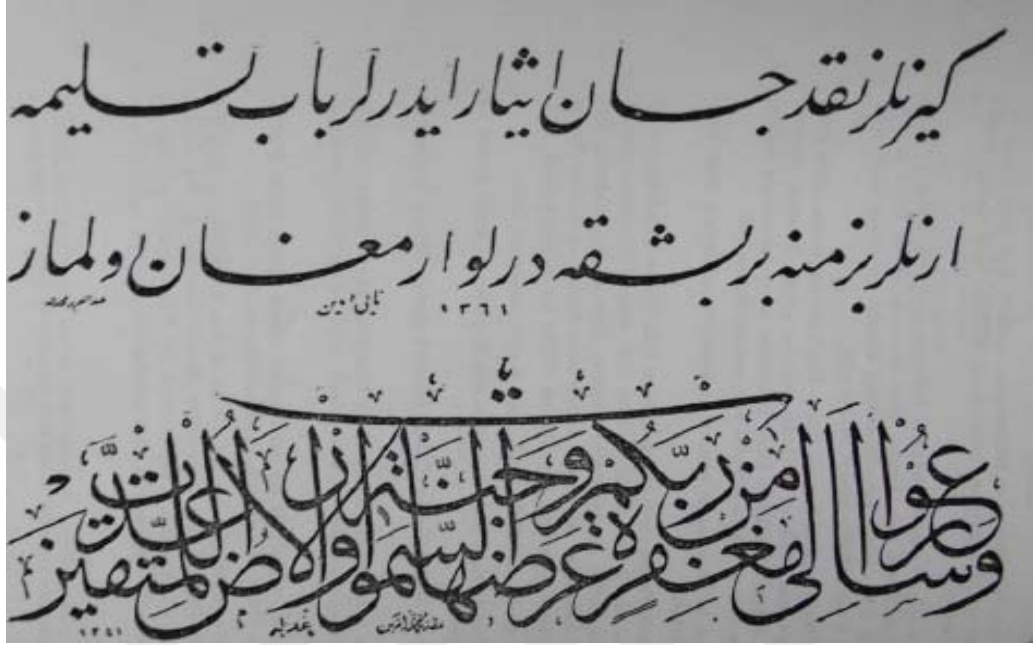 كيرنلر نقد جان ايثار ايدرلر باب تسليمه
ارنلر بزمنه بر بشقه درلو ارمغان اولماز
١٣٦١
وسارعوا الى مغفرة من ربكم وجنة عرضها السموات والارض اعدت للمتقين